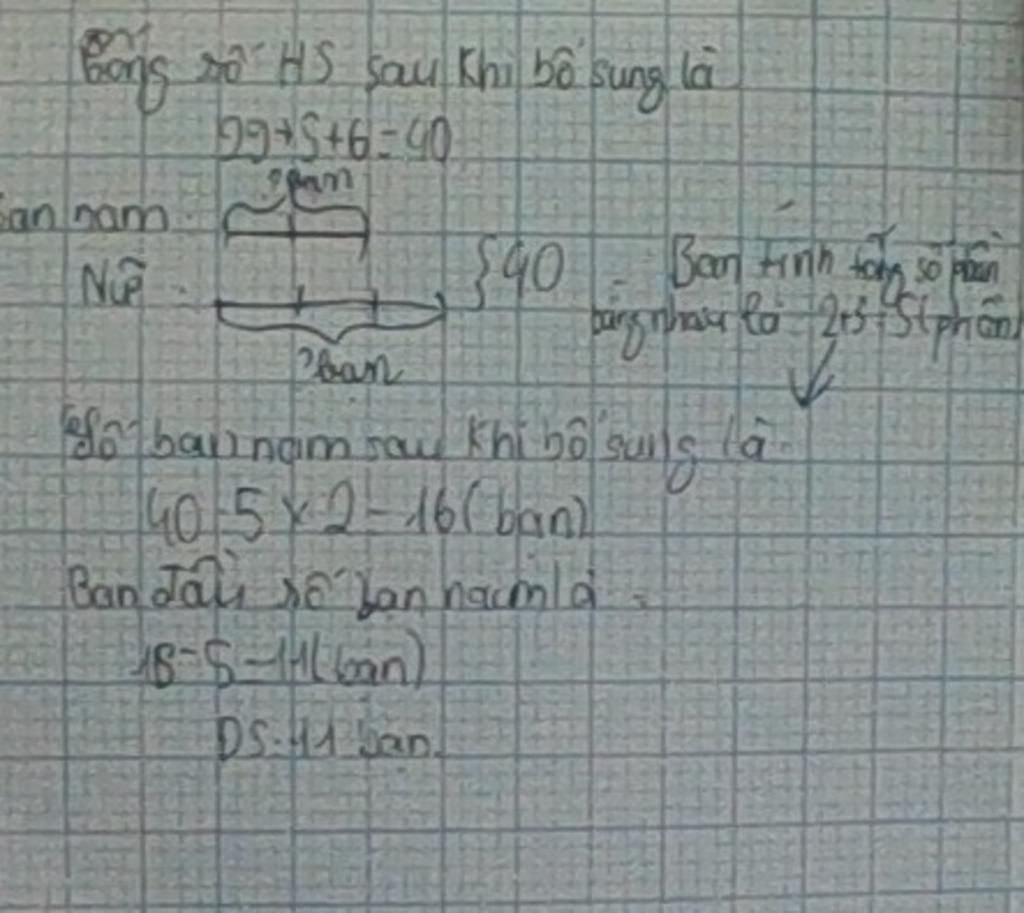 Tổng số HS sau khi bổ sung là
29+5+6=40
? bạn
Bạn nam
Nữ
}40
? bạn
Bạn tính tổng số phần
bằng nhau là 2+3=5(phần)
Số bạn nam sau khi bổ sung là
40:5 x 2=16(bạn)
Ban đầu số bạn nam là
16-5=11(bạn)
ĐS:11 bạn.